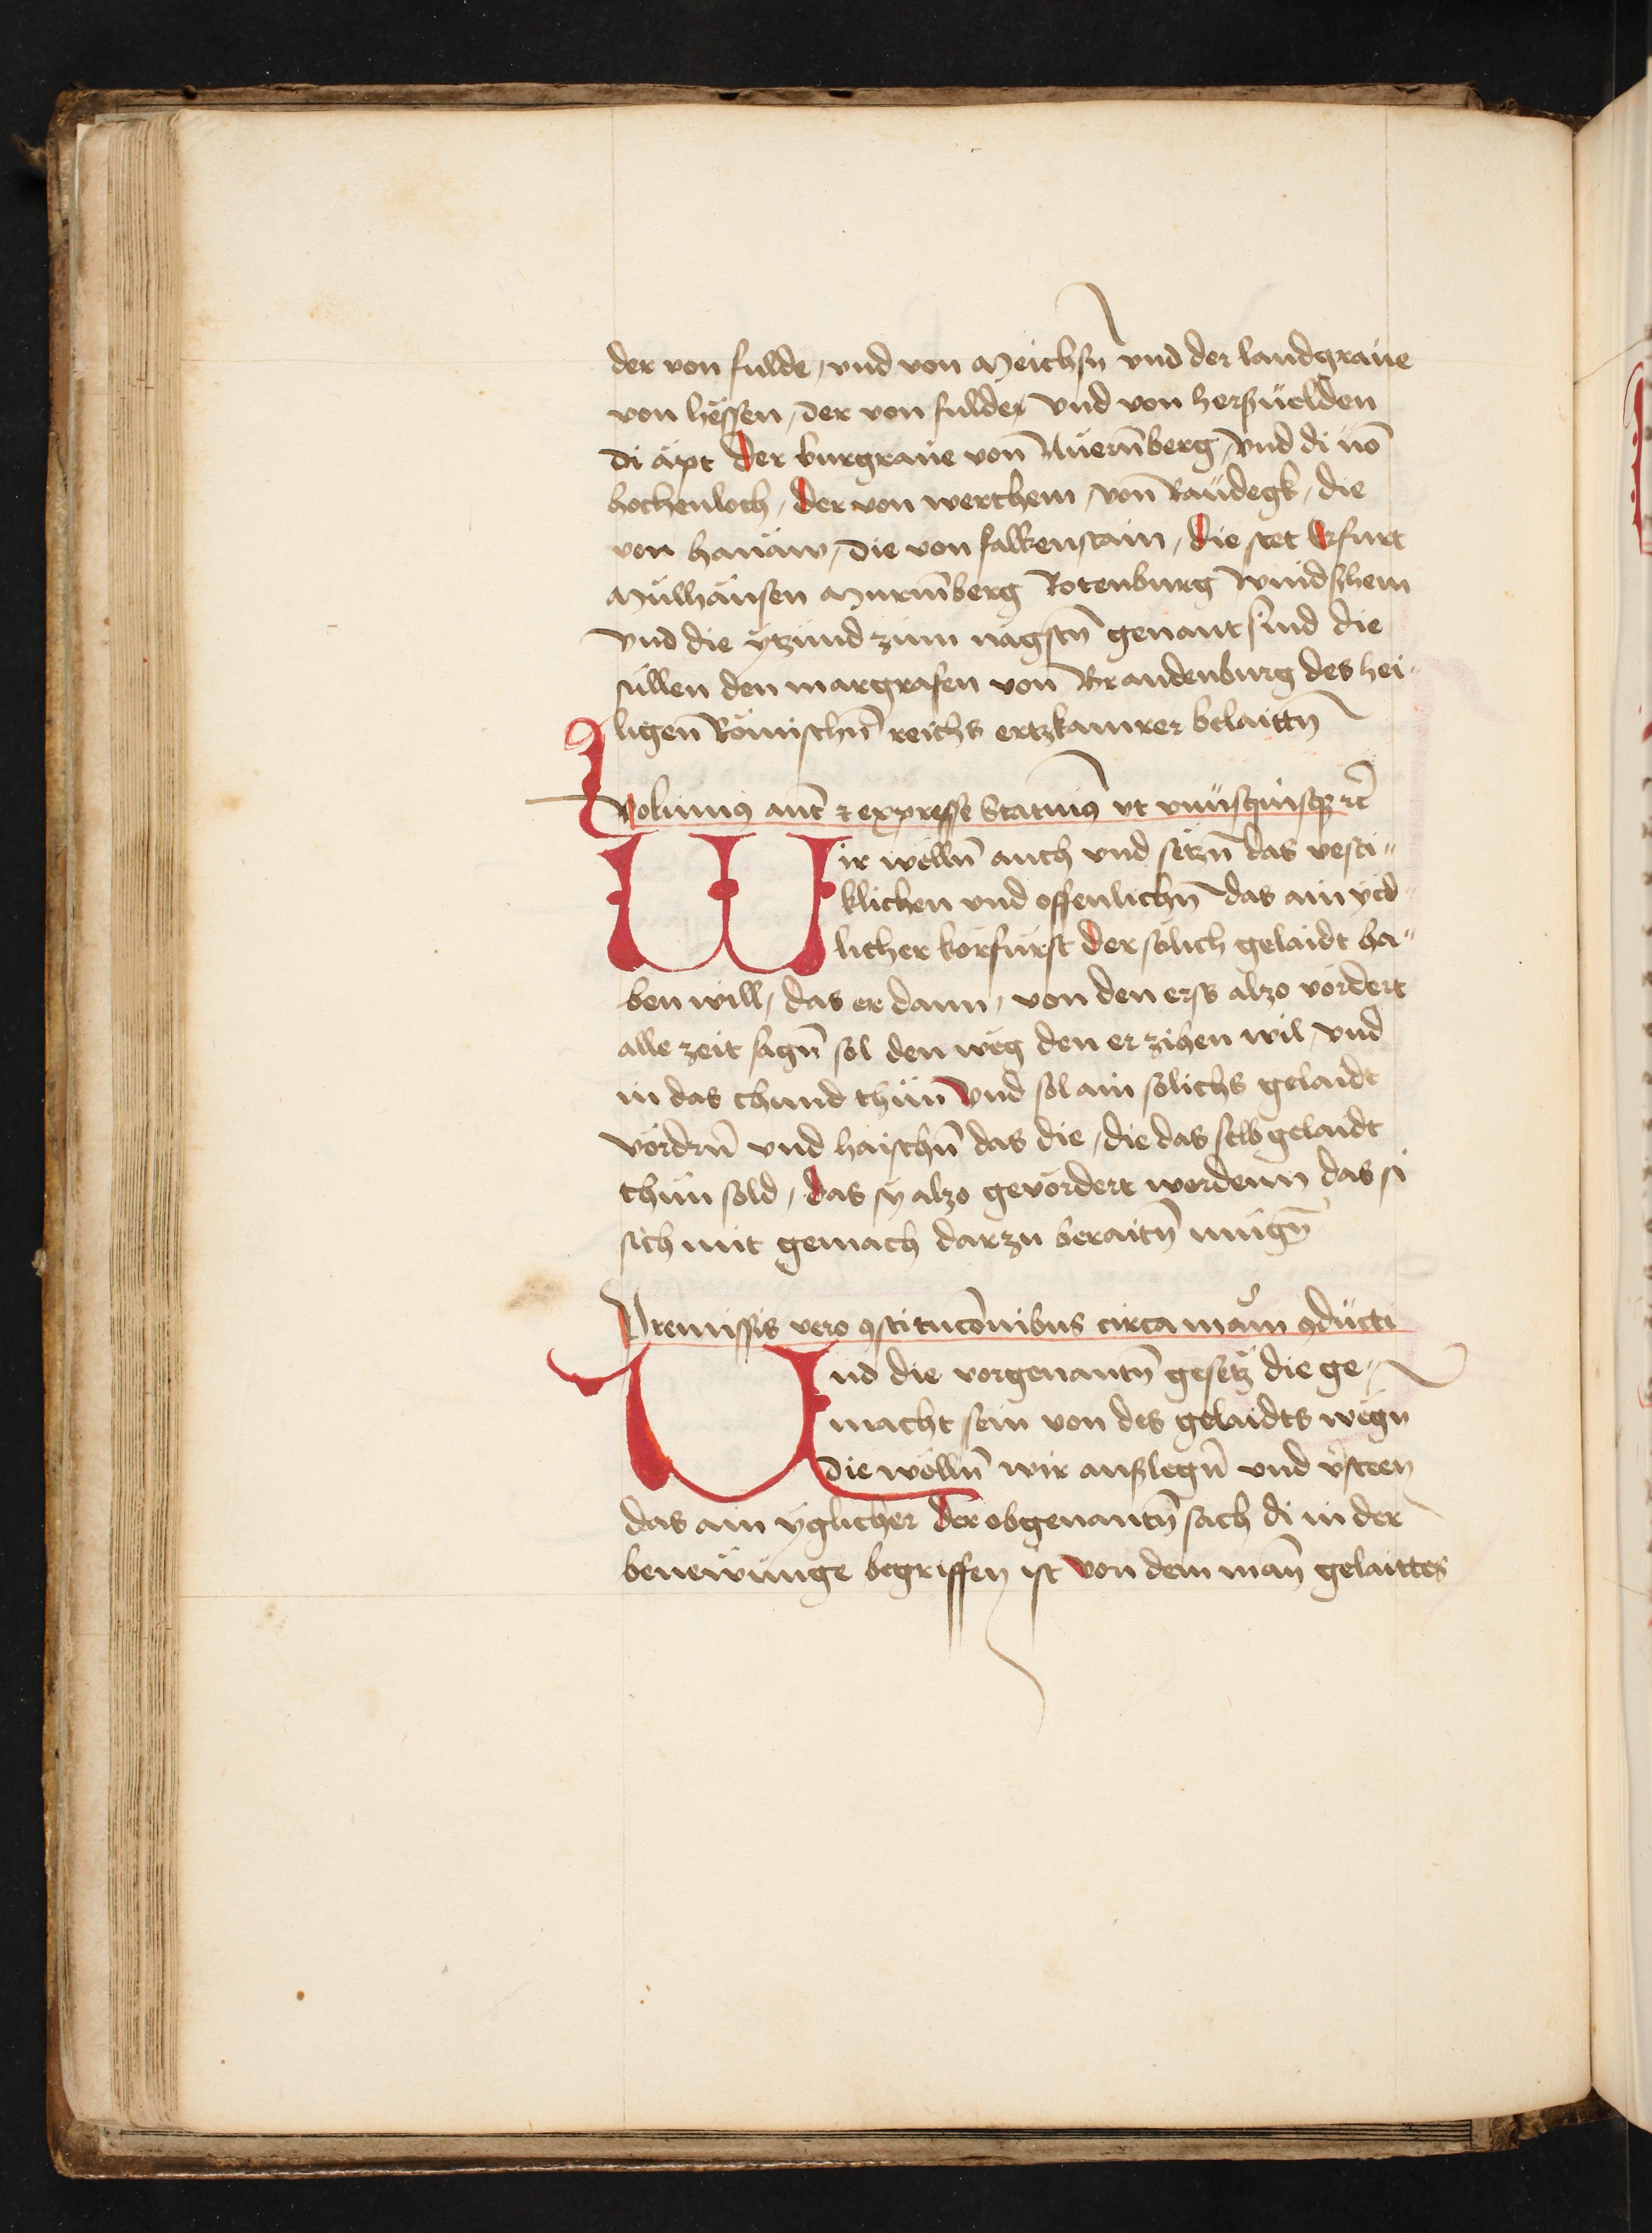 der von fulde, vnd von Meichsn̄ vnd der landgraue
von hëssen, der von fulder vnd von herßuelden
di äpt der burgraue von̄ Nuern̄berg, vnd di vō
hochenloch, der von werthem, von̄ Raŭdegk, die
von hanaw, die von falkenstain, die stet Erfurt
Mülhausen Nurm̄berg Rotenburg Windshem
vnd die ytzund zum nägstn̄ genant sind die
süllen den margrafen von̄ Brandenburg des hei„
ligen̄ Römischn̄ reichs ertzkamrer belaittn̄
Volumꝯ aut̄ ⁊ expresse Statuimꝯ vt vnusquisqꝫ ⁊c̄
Wir wëlln̄ auch vnd sëtzn̄ das vesti„
klichen vnd offenlichn̄ das ain yed„
licher körfürst der sölich gelaidt ha„
ben will, das er dann, von den ers alzo vördert
alle zeit sagn̄ sol den wëg den er zihen wil, vnd
in das chund thün̄ vnd sol ain sölichs gelaidt
vördrn̄ vnd haischn̄ das die, die das selb gelaidt
thün sold, das sy alzo gevördert werdenn das si
sich mit gemach darzu beraitn̄ mügn̄
Premissis vero ꝯstitucōnibus circa mām ꝯducti
Vnd die vorgenantn̄ gesëtz die ge„
macht sein von des gelaidts wëgn
die wölln̄ wir außlegn̄ vnd v̄steen
das ain yglicher der obgenantn̄ sach di in der
benewunge begriffen ist von dem man̄ gelaittes